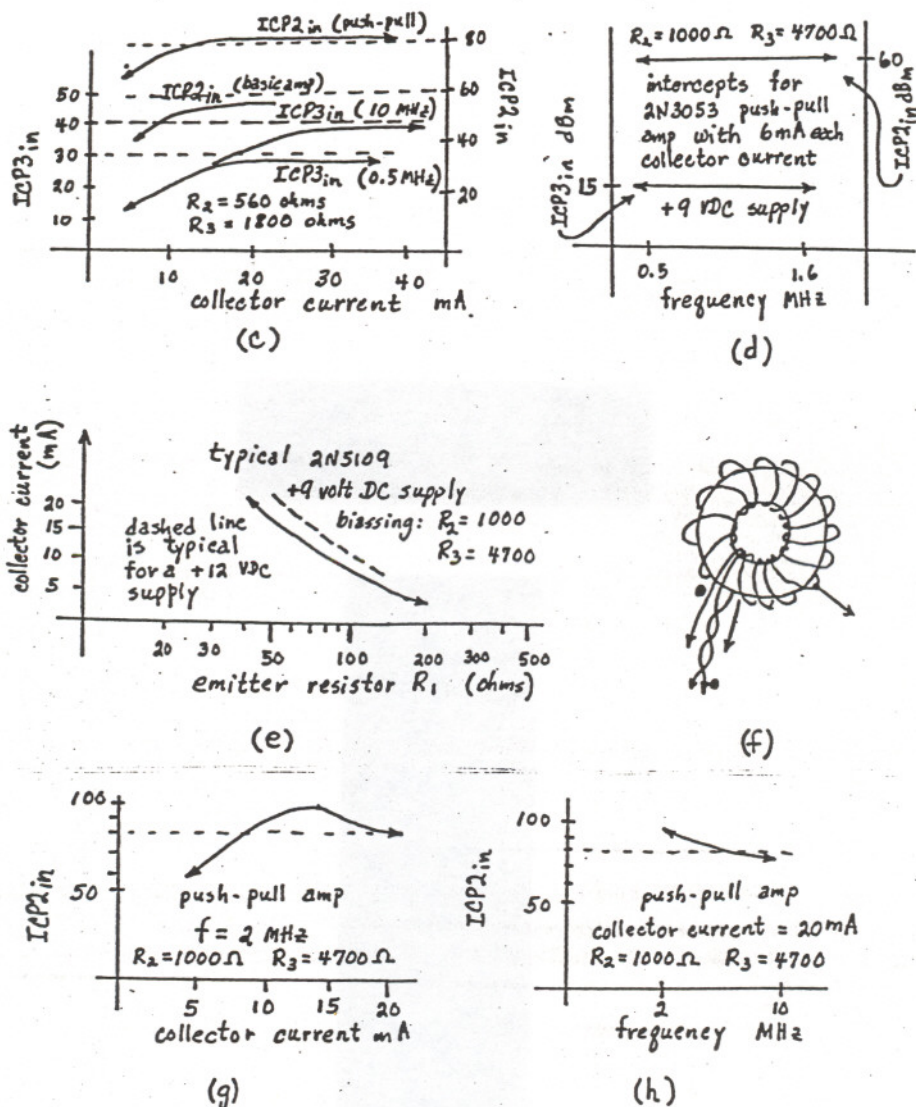 ICP2in (push-pull)
80
ICP2in (basic amp)
60
50
ICP3in (10 MHz)
40
40
30
ICP3in (0.5 MHz)
20
20
R2 = 560 ohms
R3 = 1800 ohms
10
ICP3in
ICP2in
10 20 30 40
collector current mA
(c)
R2 = 1000 Ω R3 = 4700 Ω
60
intercepts for
2N3053 push-pull
amp with 6mA each
collector current
15
+9 VDC supply
ICP3in dBm
ICP2in dBm
0.5 1.6
frequency MHz
(d)
collector current
(mA)
typical 2N5109
+9 volt DC supply
biassing: R2 = 1000
R3 = 4700
20
15
10
5
dashed line
is typical
for a +12 VDC
supply
20 30 50 100 200 300 500
emitter resistor R1 (ohms)
(e)
(f)
100
50
ICP2in
push-pull amp
f = 2 MHz
R2 = 1000 Ω R3 = 4700 Ω
5 10 15 20
collector current mA
(g)
100
50
ICP2in
push-pull amp
collector current = 20 mA
R2 = 1000 Ω R3 = 4700
2 10
frequency MHz
(h)